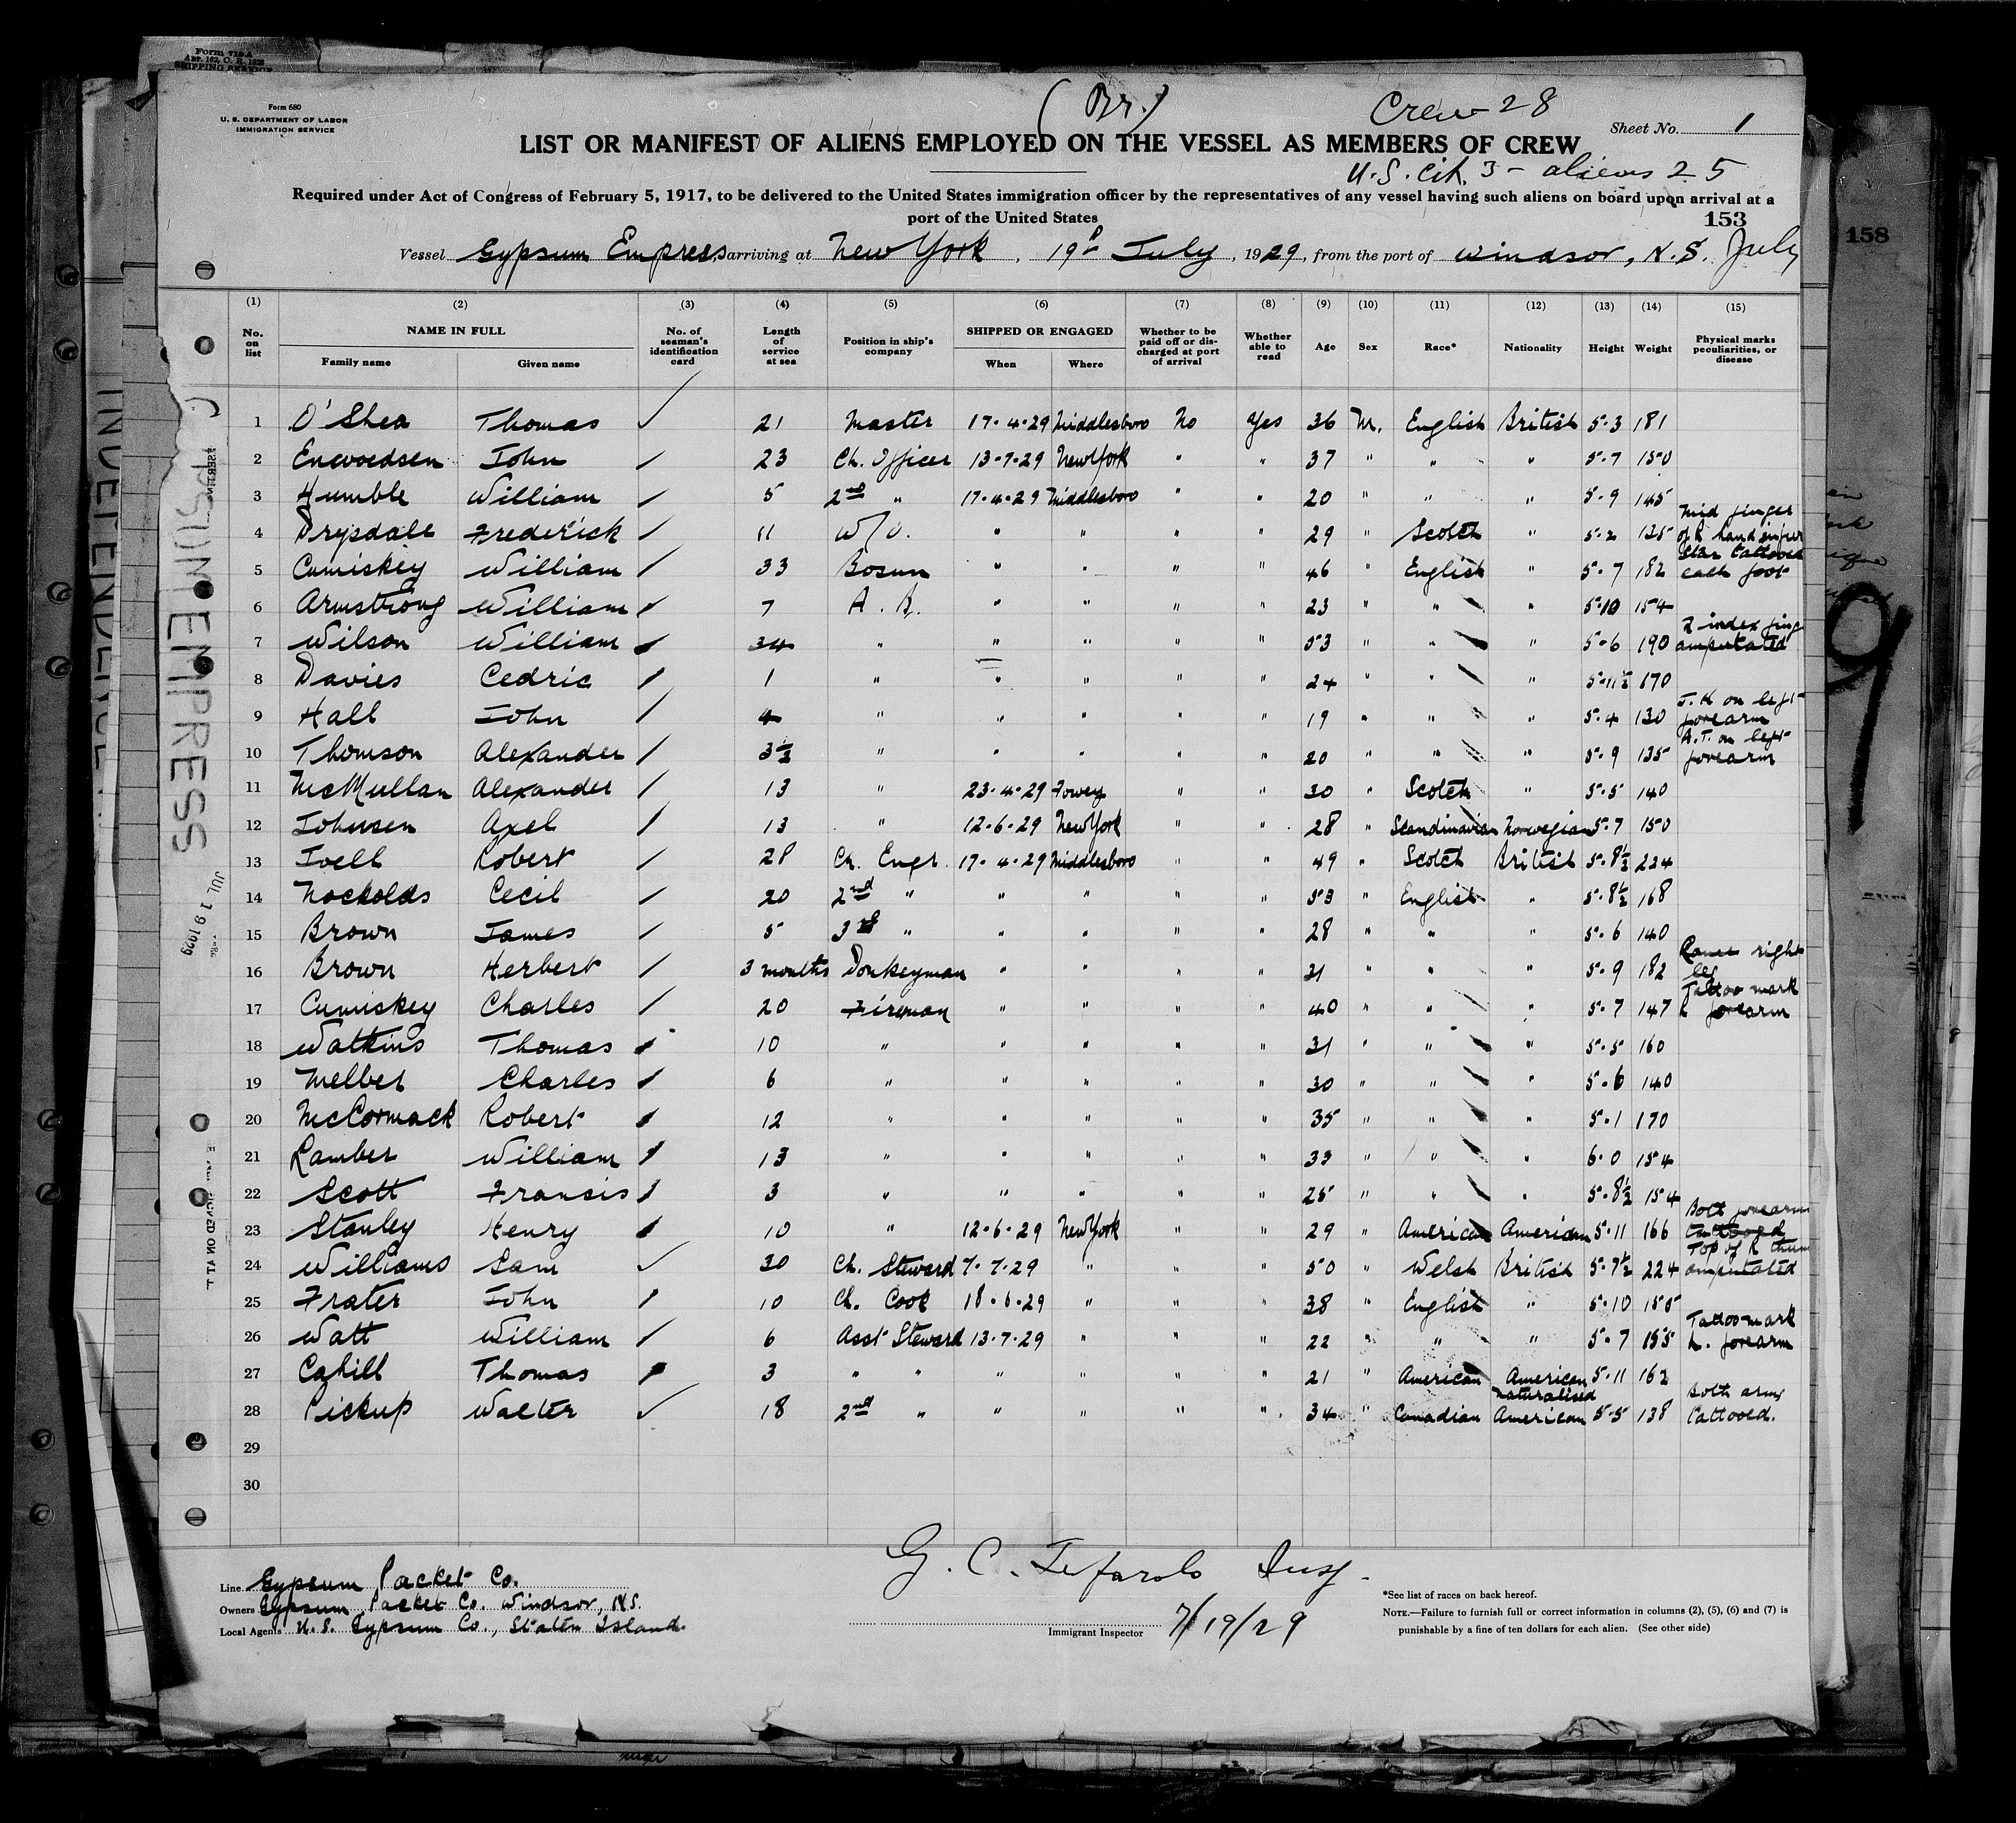 Form 680
U. S. DEPARTMENT OF LABOR
IMMIGRATION SERVICE
(Br.)
Crew 28
Sheet No. 1
LIST OR MANIFEST OF ALIENS EMPLOYED ON THE VESSEL AS MEMBERS OF CREW
U.S. Cit. 3 - aliens 25
Required under Act of Congress of February 5, 1917, to be delivered to the United States immigration officer by the representatives of any vessel having such aliens on board upon arrival at a
port of the United States
153
158
Vessel Gypsum Empress, arriving at New York, 19th July, 1929, from the port of Windsor, N.S. July
(1) (2) (3) (4) (5) (6) (7) (8) (9) (10) (11) (12) (13) (14) (15)
No. on list NAME IN FULL Family name Given name No. of seaman's identification card Length of service at sea Position in ship's company SHIPPED OR ENGAGED When Where Whether to be paid off or discharged at port of arrival Whether able to read Age Sex Race* Nationality Height Weight Physical marks peculiarities, or disease
1 O'Shea Thomas 21 Master 17-4-29 Middlesboro No Yes 36 M. English British 5-3 181
2 Enevoedsen John 23 Ch. Officer 13-7-29 New York " " 37 " " " 5-7 150
3 Humble William 5 2nd " 17-4-29 Middlesboro " " 20 " " " 5-9 145
4 Drysdale Frederick 11 W/O. " " " " 29 " Scotch " 5-2 125 Mid finger of R hand
5 Cumiskey William 33 Bosun " " " " 46 " English " 5-7 182 Star tattooed each foot
6 Armstrong William 7 A.B. " " " " 23 " " " 5-10 154
7 Wilson William 34 " " " " " 53 " " " 5-6 190 index fing amputated
8 Davies Cedric 1 " " " " " 24 " " " 5-11½ 170
9 Hall John 4 " " " " " 19 " " " 5-4 130 J.H on left forearm
10 Thomson Alexander 3½ " " " " " 20 " " " 5-9 135 A.T. on left forearm
11 McMullan Alexander 13 " 23-4-29 Fowey " " 30 " Scotch " 5-5 140
12 Johnsen Axel 13 " 12-6-29 New York " " 28 " Scandinavian Norwegian 5-7 150
13 Ivell Robert 28 Ch. Engr. 17-4-29 Middlesboro " " 49 " Scotch British 5-8½ 224
14 Nockolds Cecil 20 2nd " " " " " 53 " English " 5-8½ 168
15 Brown James 5 3rd " " " " " 28 " " " 5-6 140
16 Brown Herbert 3 months Donkeyman " " " " 31 " " " 5-9 182 right leg
17 Cumiskey Charles 20 Fireman " " " " 40 " " " 5-7 147 Tattoo mark L forearm
18 Watkins Thomas 10 " " " " " 31 " " " 5-5 160
19 Melber Charles 6 " " " " " 30 " " " 5-6 140
20 McCormack Robert 12 " " " " " 35 " " " 5-1 170
21 Lamber William 13 " " " " " 33 " " " 6-0 154
22 Scott Francis 3 " " " " " 25 " " " 5-8½ 154
23 Stanley Henry 10 " 12-6-29 New York " " 29 " American American 5-11 166 Both forearm tattooed
24 Williams Sam 30 Ch. Steward 7-7-29 " " " 50 " Welsh British 5-7½ 224 Top of R thum amputated
25 Frater John 10 Ch. Cook 18-6-29 " " " 38 " English " 5-10 150
26 Watt William 6 Asst Steward 13-7-29 " " " 22 " " " 5-7 155 Tattoo mark L. forearm
27 Cahill Thomas 3 " " " " " " 21 " American American 5-11 162
28 Pickup Walter 18 2nd " " " " " 34 " Canadian naturalised American 5-5 138 Both arms tattooed.
29
30
GYPSUM EMPRESS
JUL 19 1929
Line Gypsum Packet Co.
Owners Gypsum Packet Co. Windsor, N.S.
Local Agents U.S. Gypsum Co., Staten Island.
G. C. Insp.
Immigrant Inspector 7/19/29
*See list of races on back hereof.
NOTE.—Failure to furnish full or correct information in columns (2), (5), (6) and (7) is
punishable by a fine of ten dollars for each alien. (See other side)